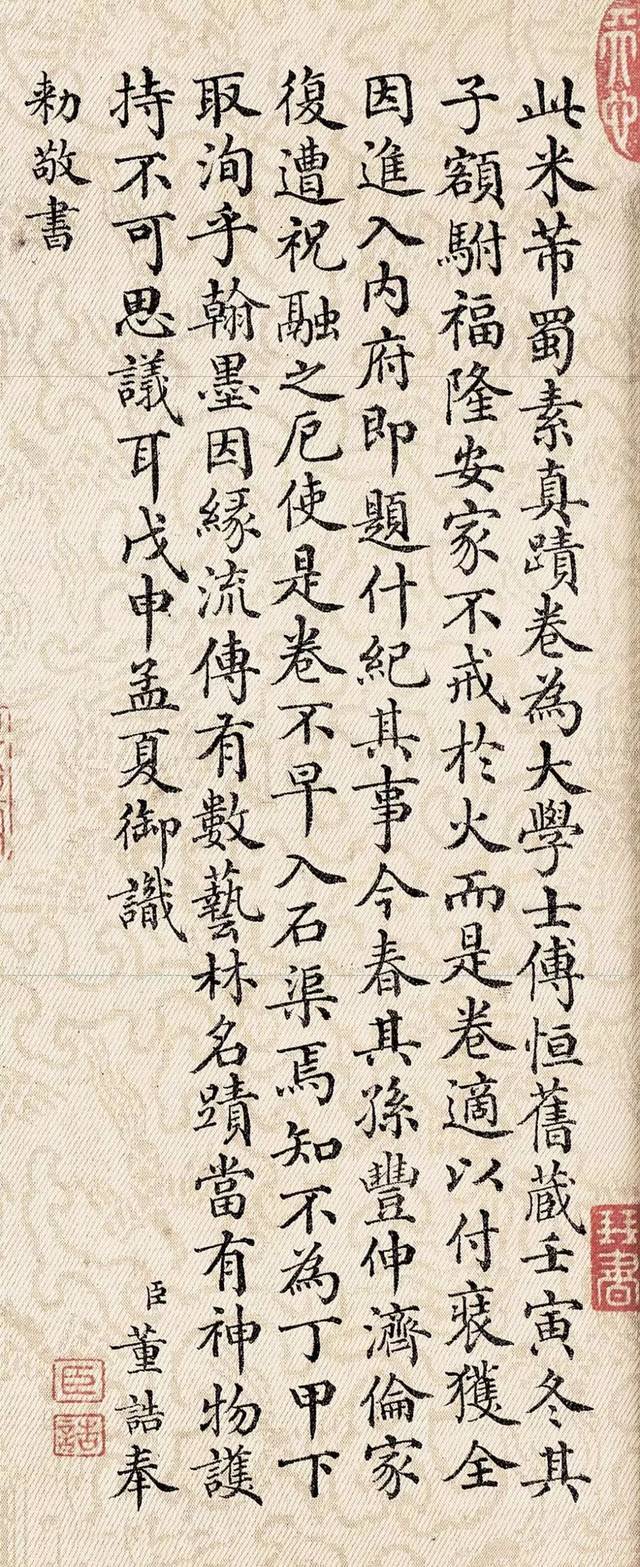 此米芾蜀素真蹟卷為大學士傅恒舊藏壬寅冬其
子額駙福隆安家不戒於火而是卷適以付裝獲全
因進入內府即題什紀其事今春其孫豐伸濟倫家
復遭祝融之厄使是卷不早入石渠焉知不為丁甲下
取洵乎翰墨因緣流傳有數藝林名蹟當有神物護
持不可思議耳戊申孟夏御識
臣董誥奉
勅敬書
臣
誥
琴書